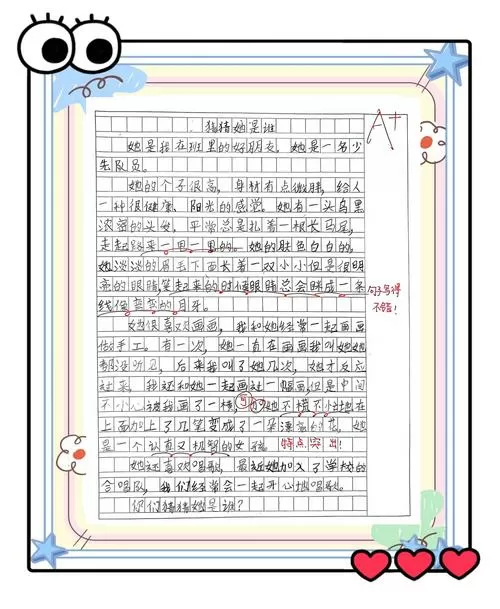 猜猜她是谁
A+
她是我在班里的好朋友，她是一名少
先队员。
她的个子很高，身材有点微胖，给人
一种很健康、阳光的感觉。她有一头乌黑
浓密的头发，平常总是扎着一根长马尾，
走起路来一甩一甩的。她的肤色白白的，
她淡淡的眉毛下面长着一双小小但是很明
亮的眼睛，笑起来的时候眼睛总会眯成一条
线像弯弯的月牙。
句子写得
不错！
她很喜欢画画，我和她经常一起画画
做手工。有一次，她一直在画画我叫她她
都没听见，后来我叫了她几次，她才反应
过来。我还和她一起画过一幅画，但是中间
不小心被我画了一横，她不慌不忙地在
上面加上了几笔变成了一朵漂亮的花，她
是一个认真又机智的女孩。
特点突出！
她还喜欢唱歌，最近她加入了学校的
合唱队，我们经常会一起开心地唱歌。
你们猜猜她是谁？